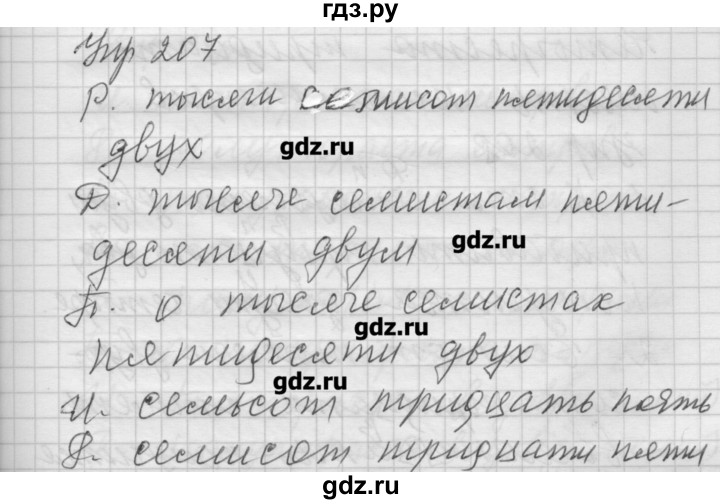 гдз.ру
Упр 207
Р. тысячи семисот пятидесяти
двух
gdz.ru
Д. тысяче семистам пяти-
десяти двум
gdz.ru
П. о тысяче семистах
gdz.ru
пятидесяти двух
gdz.ru
И. семьсот тридцать пять
Р. семисот тридцати пяти
gdz.ru